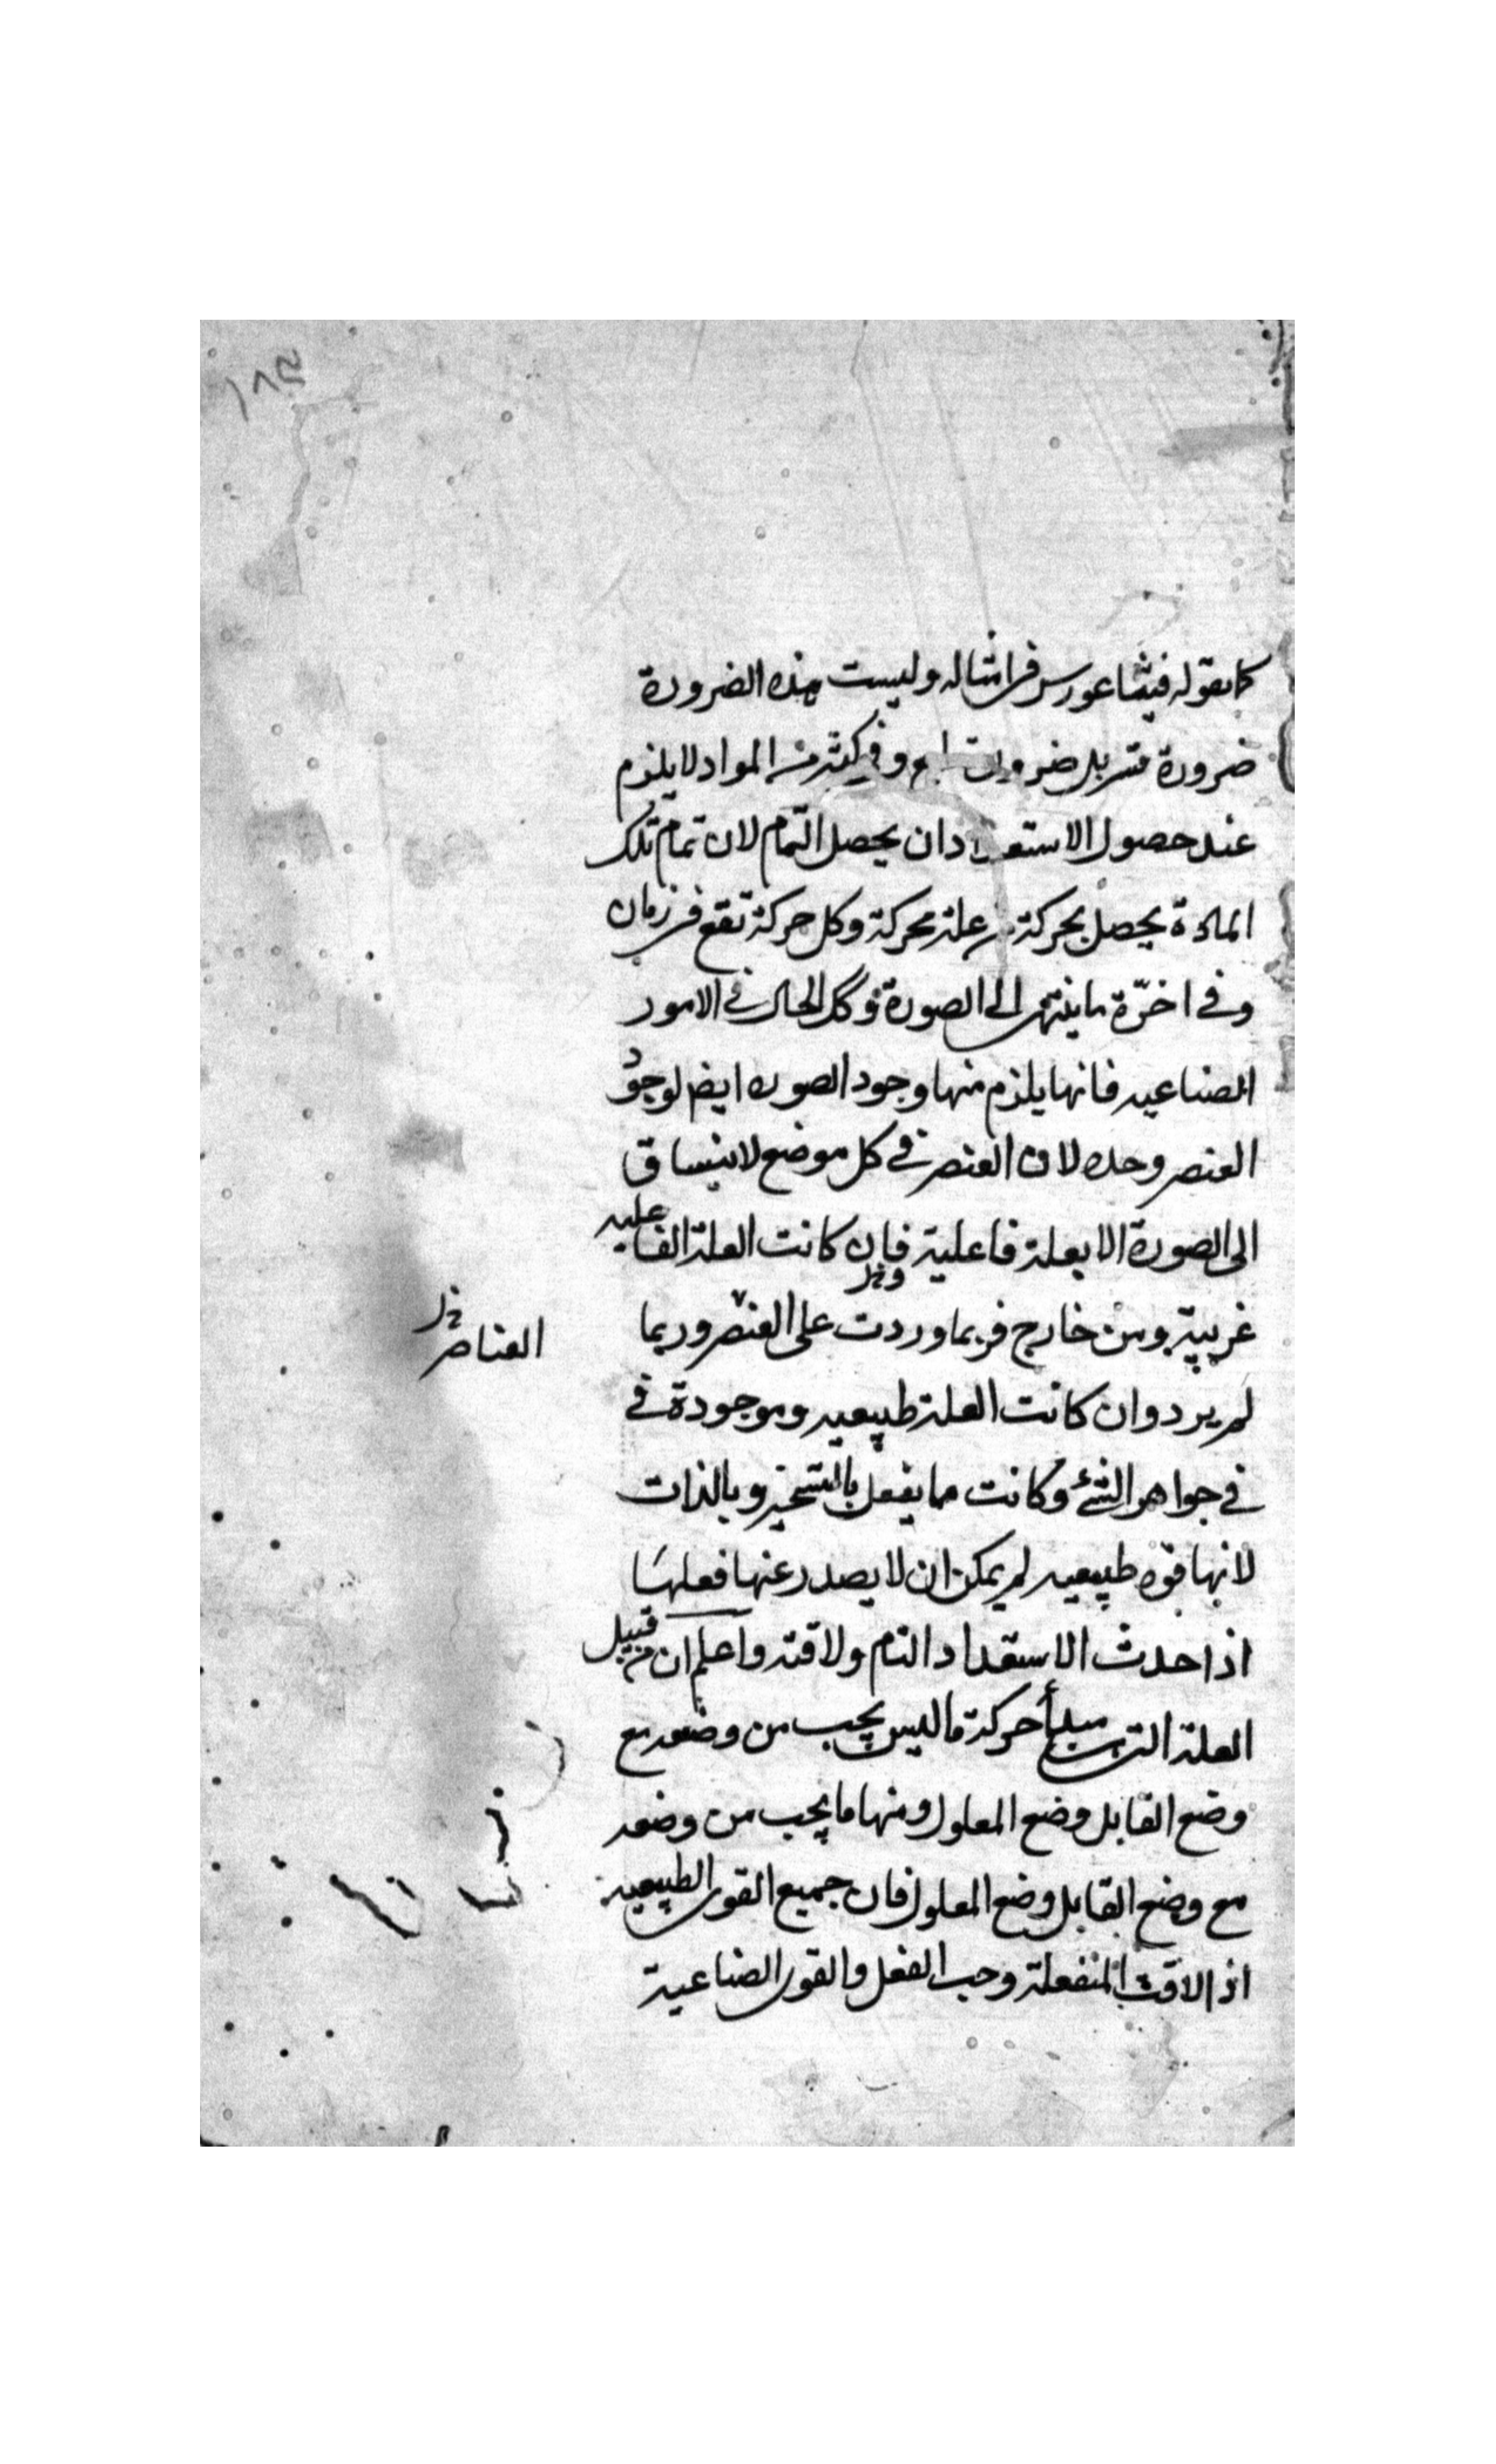 ١٨٣
كما يقوله فيثاغورس في امثاله وليست هذه الضرورة
ضرورة بل وفي كثير من المواد لا يلزم
عند حصول الاستعداد ان يحصل التمام لان تمام تلك
المادة يحصل بحركة من علة محركة وكل حركة تقع في زمان
وفي اخرة ما ينتهى الى الصورة وكل الحال في الامور
الصناعيه فانها يلزم منها وجود الصوره ايض لوجود
العنصر وحده لان العنصر في كل موضع لا ينساق
الى الصورة الا بعلة فاعلية فان كانت العلة الفاعليه
غريبة ومن خارج فربما وردت على العنصر وربما
العناصر
لم يرد وان كانت العلة طبيعيه وموجودة في
في جواهر الشئ وكانت مما يفعل بالتسخير وبالذات
لانها قوه طبيعيه لم يمكن ان لا يصدر عنها فعلها
اذا حدث الاستعداد التام ولاقته واعلم ان من قبيل
العلة التى مبدأ حركة ما ليس يجب من وضعه مع
وضع القابل وضع المعلول ومنها ما يجب من وضعه
مع وضع القابل وضع المعلول فان جميع القوى الطبيعيه
اذا لاقت المنفعلة وجب الفعل والقوى الصناعية